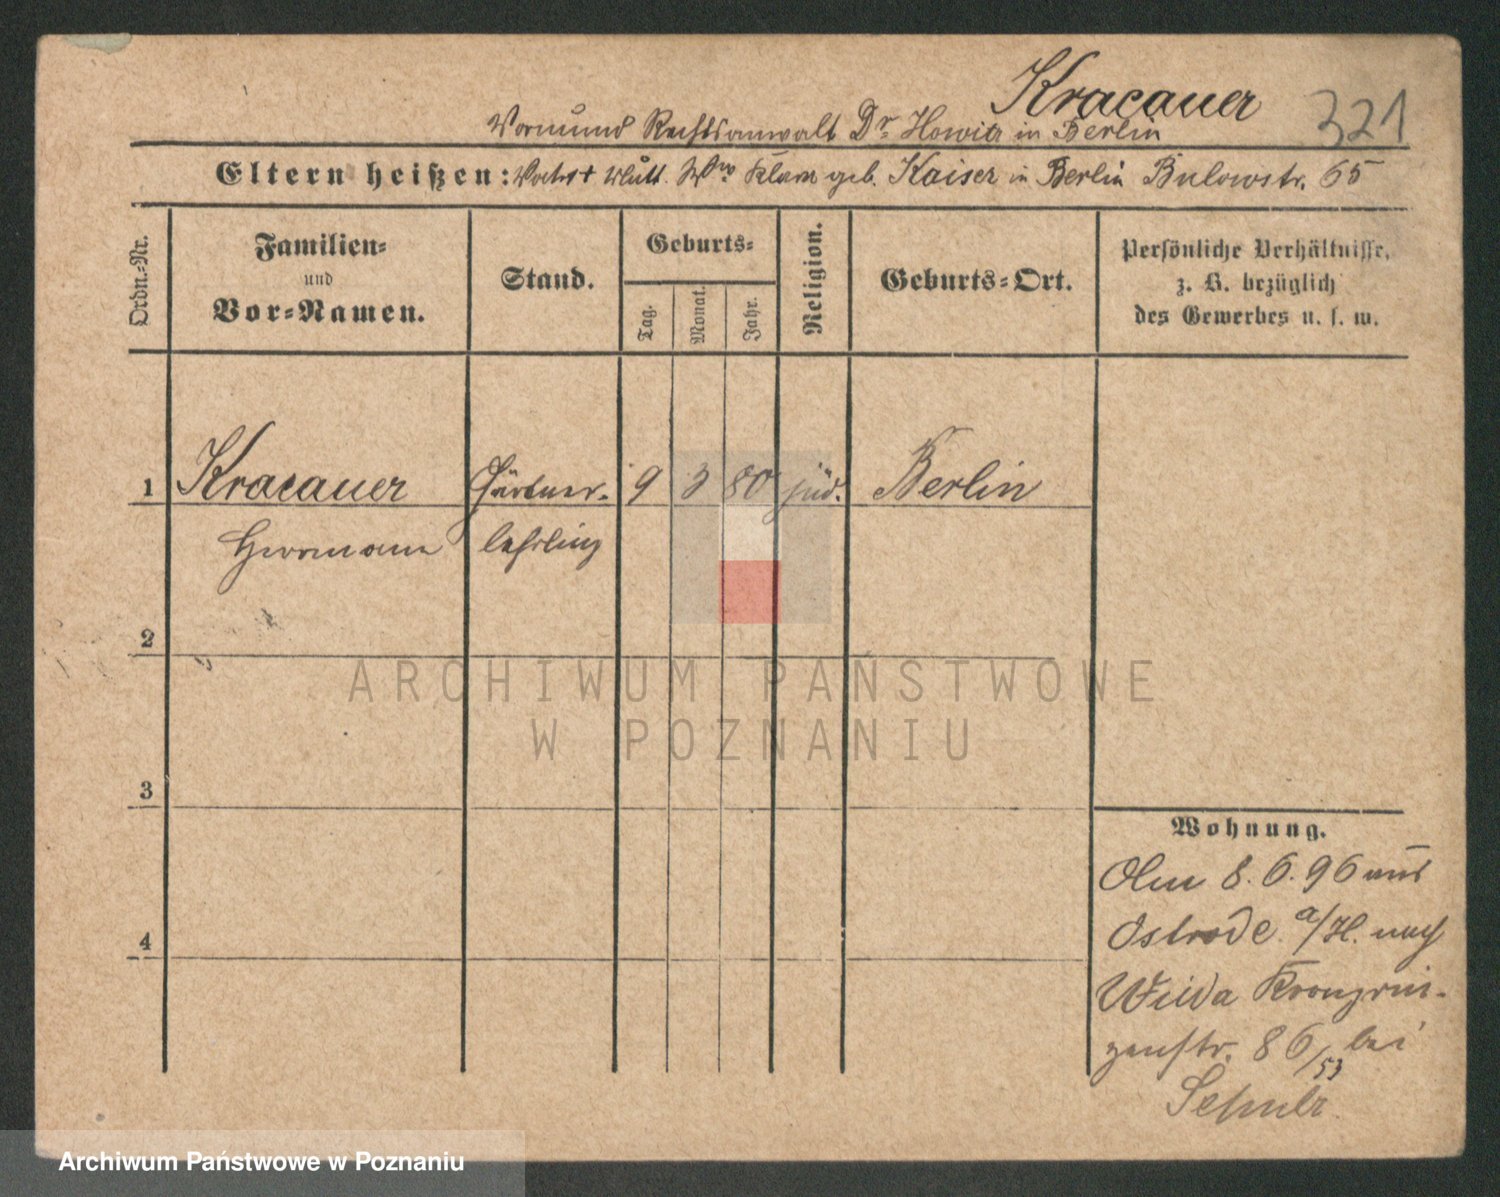 Kracauer 321
Vormund Rechtsanwalt Dr. Howitz in Berlin
Eltern heißen: Vater † Mutt. Ww. Klara geb. Kaiser in Berlin Bulowstr. 65
Ordn.-Nr.
Familien-
und
Vor-Namen.
Stand.
Geburts-
Tag.
Monat.
Jahr.
Religion.
Geburts-Ort.
Persönliche Verhältnisse,
z. B. bezüglich
des Gewerbes u. s. w.
1 Kracauer Gärtner- 9 3 80 jüd. Berlin
Herrmann lehrling
2
3
4
Wohnung.
Am 8.6.96 aus
Ostrode a/H. nach
Wilda Kronprin-
zenstr. 86/53 bei
Schulz
ARCHIWUM PAŃSTWOWE
W POZNANIU
Archiwum Państwowe w Poznaniu